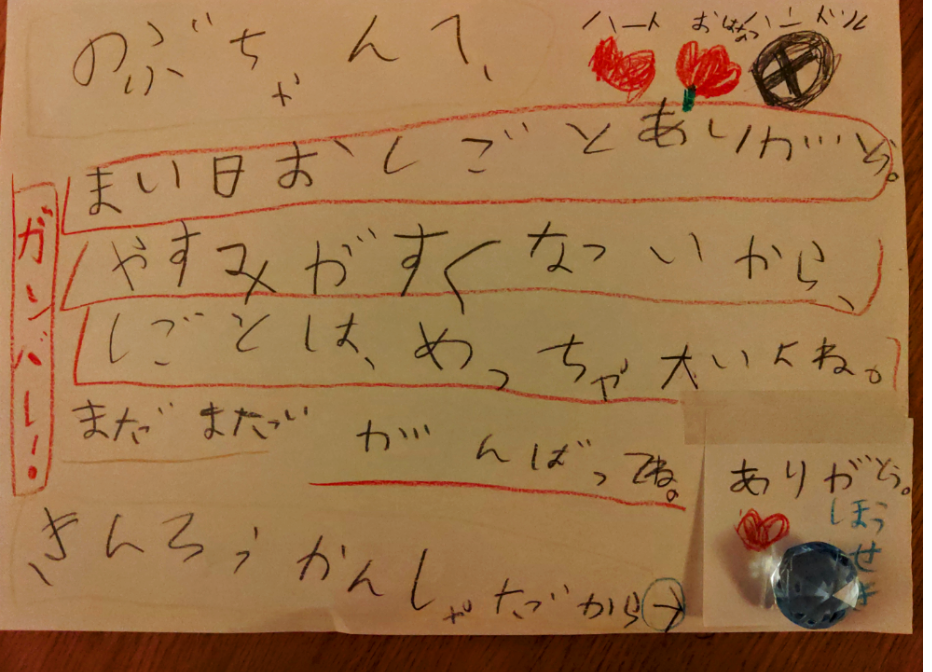 のぶちゃんへ、
ハート おはな ハンドル
まい日おしごとありがとう。
やすみがすくないから、
しごとは、めっちゃ大いよね。
まだまだ がんばってね。
きんろうかんしゃだから→
ガンバレ!
ありがとう。
ほうせき